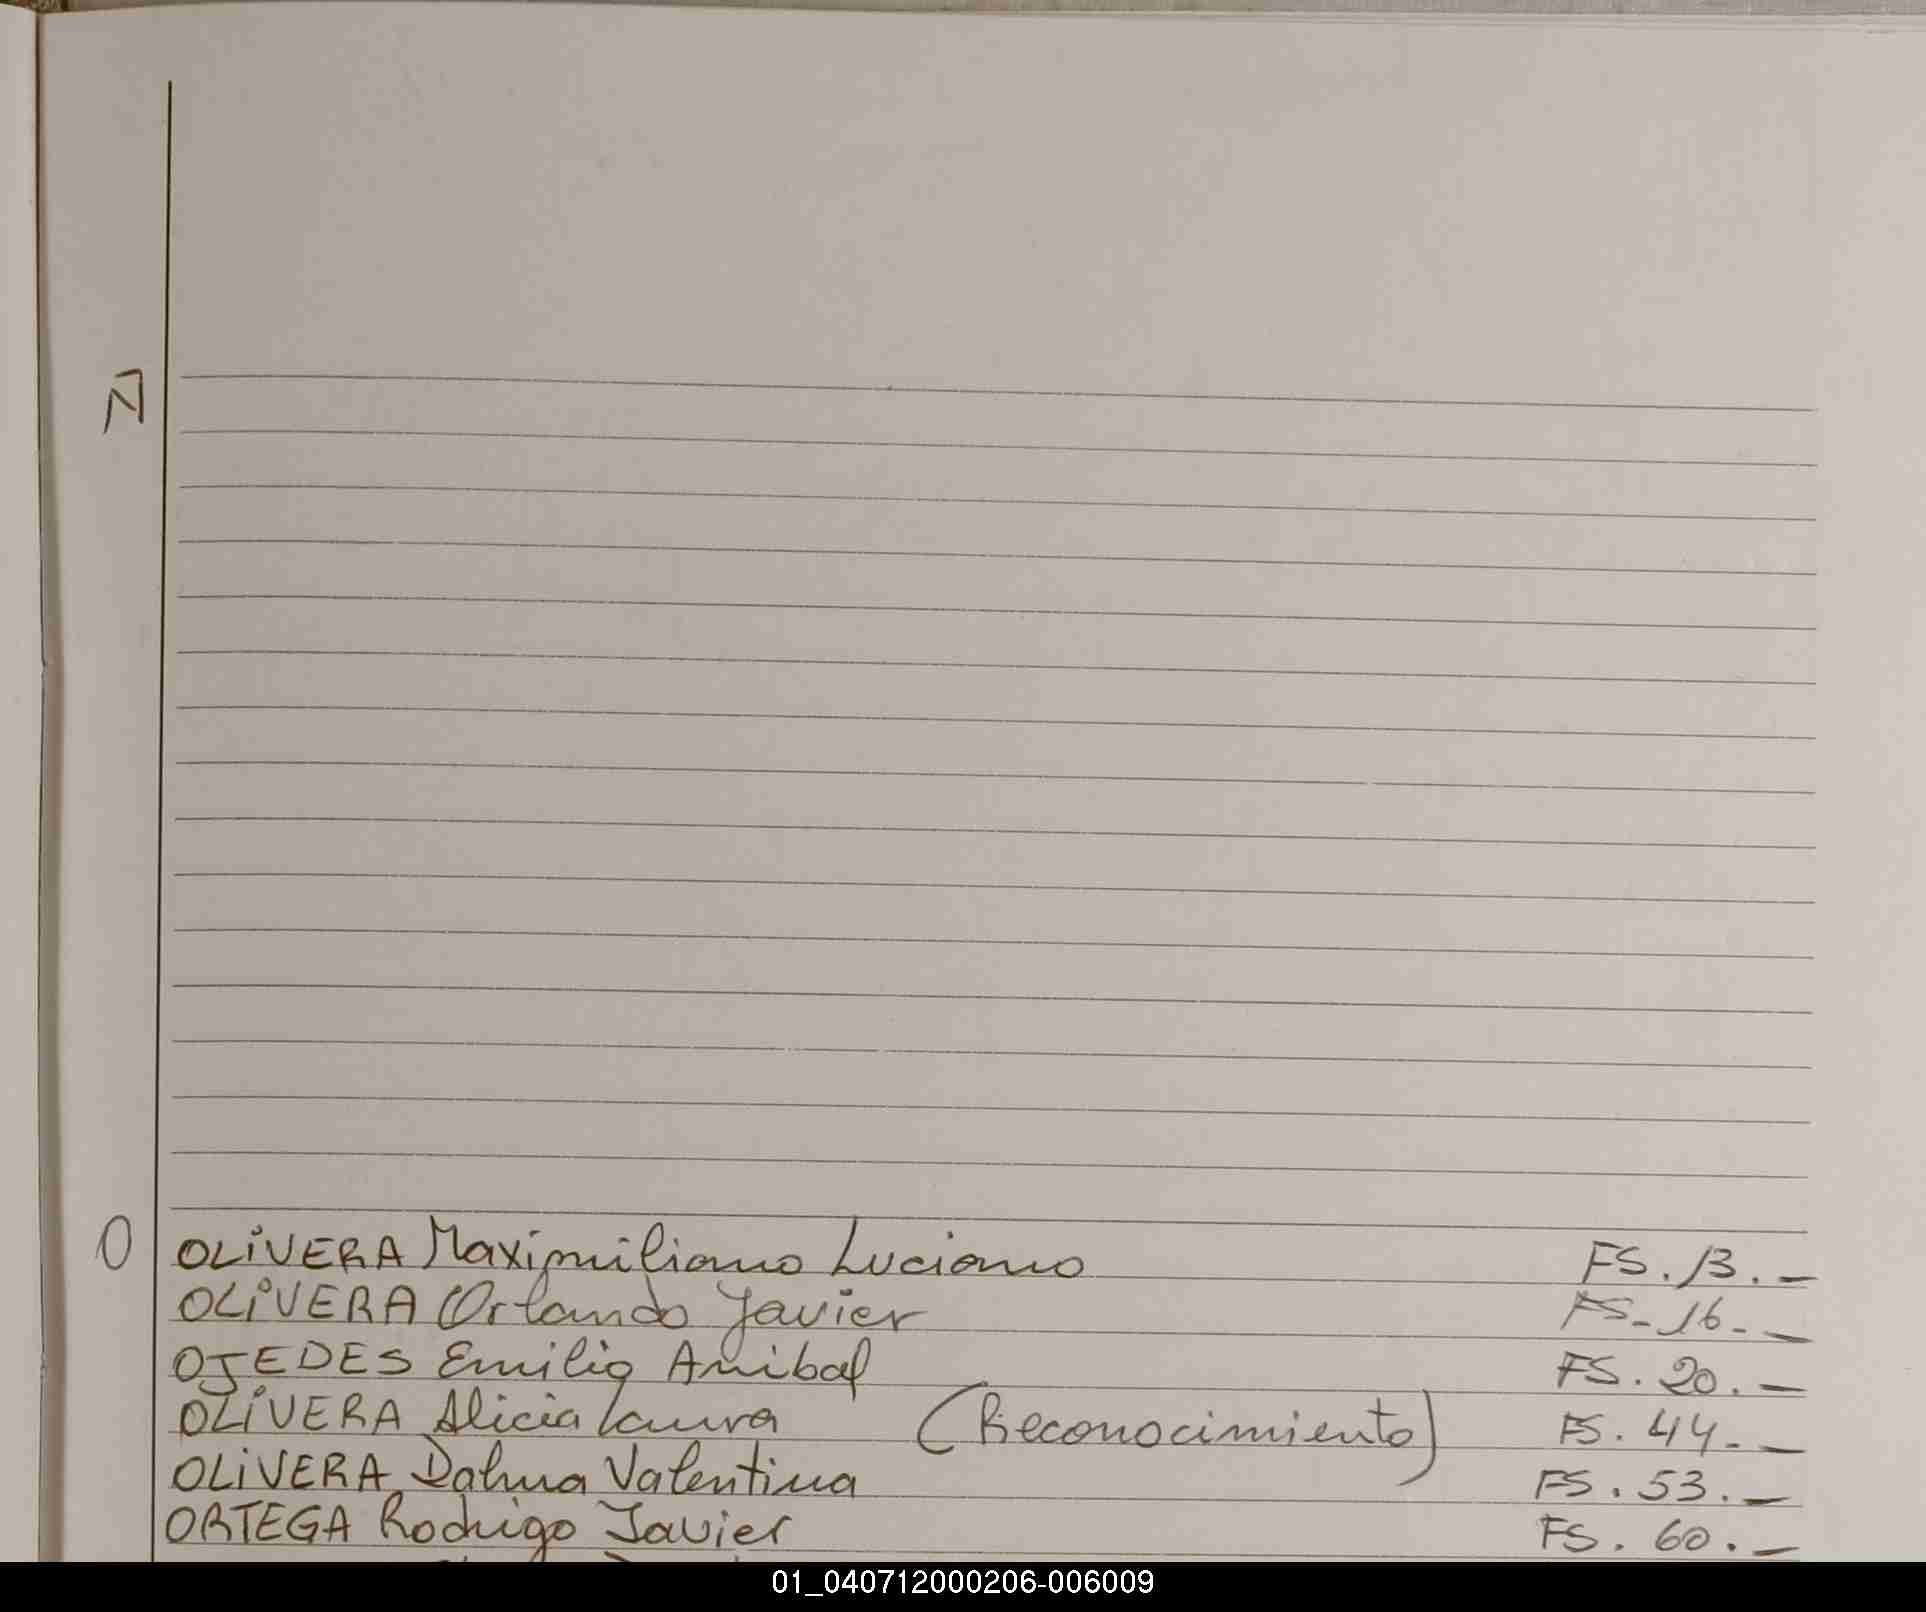 N
O
OLIVERA Maximiliano Luciano FS. 13. —
OLIVERA Orlando Javier FS - 16 - —
OJEDES Emilio Anibal FS. 20. —
OLIVERA Alicia Laura (Reconocimiento) FS. 44 - —
OLIVERA Dalma Valentina FS. 53. —
ORTEGA Rodrigo Javier FS. 60. —
01_040712000206-006009